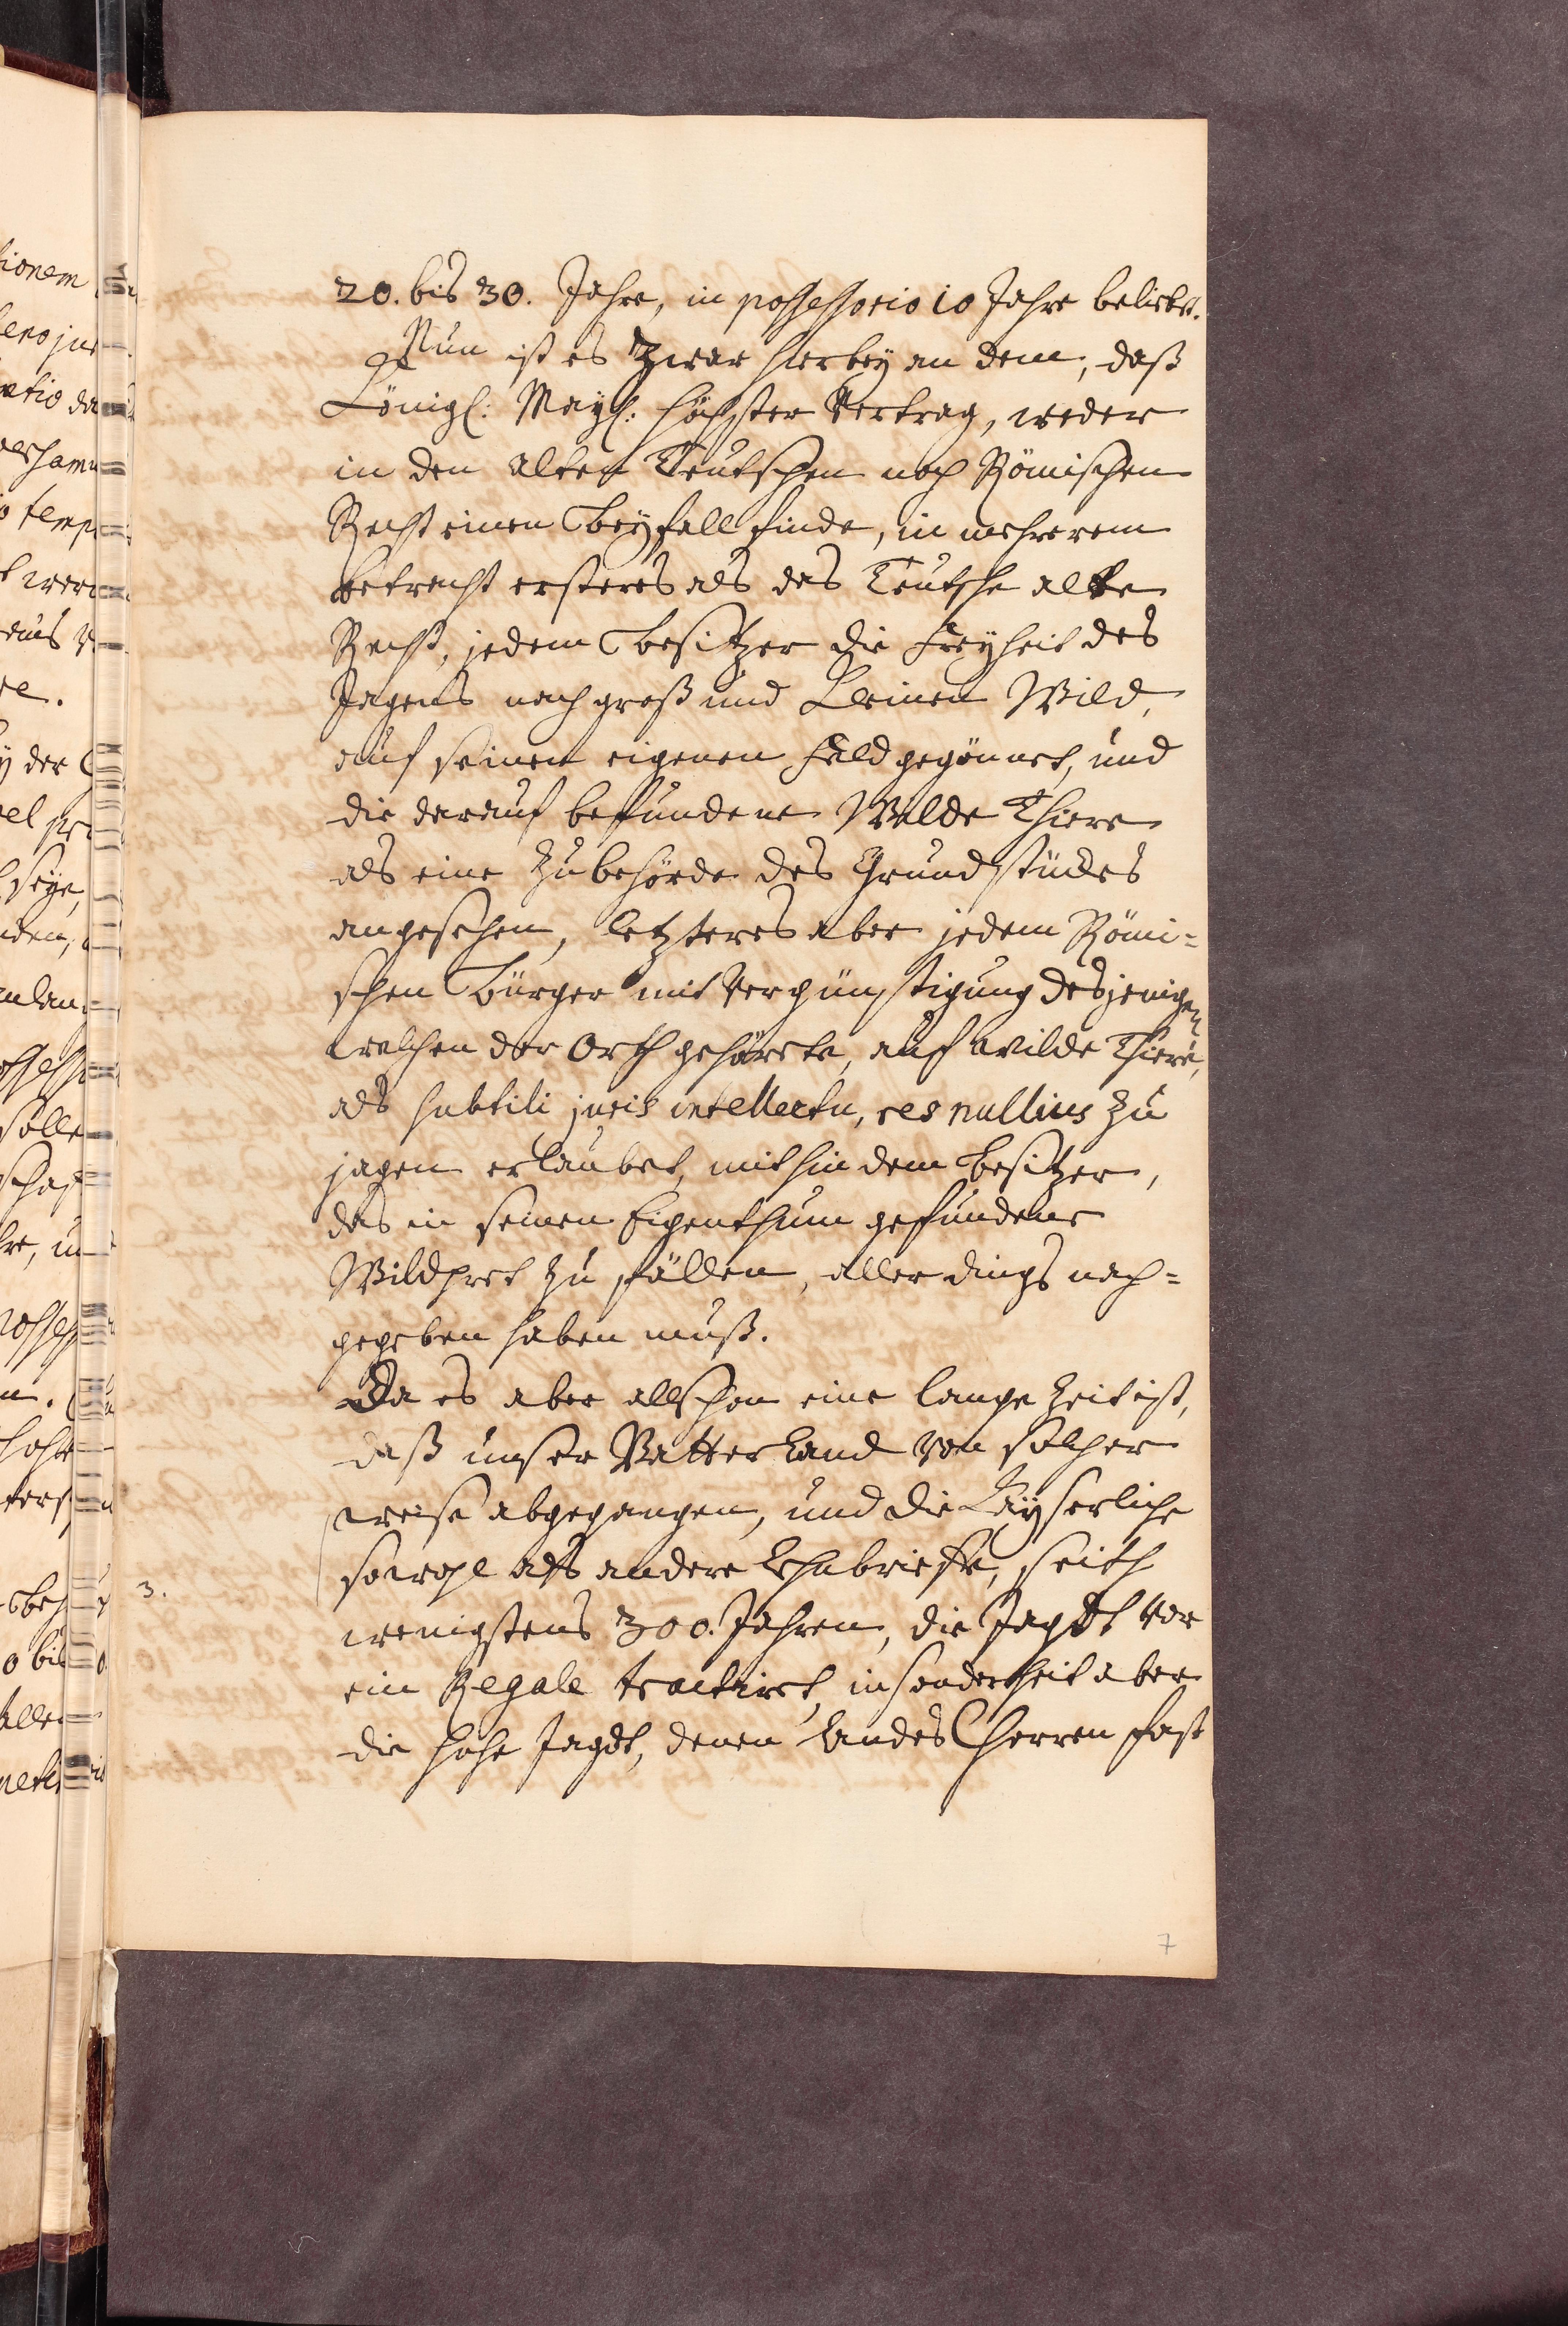 20. bis 30. Jahre, in possessorio 10 Jahre beliebt.
Nun ist es zwar hierbey an dem, daß
Königl: Mayl: höchster Vertrag, weder
in den alten Teutschen noch Römischen
Recht einen Beyfall finde, in mehrerem
betracht ersteres als das Teutsche alte
Recht, jedem Besitzer die Freyheit des
Jagens nach groß und kleinen Wild,
auf seinen eigenen Feld gegönnet, und
die darauf befundene Wilde Thiere
als eine Zubehörde des Grundstückes
angesehen, letzteres aber jedem Römi=
schen Bürger mit Vergünstigung desjenigen
welchen der Orth gehörete, auf wilde Thiere,
als subtili juris intellectu, res nullius zu
jagen erlaubet, mithin dem Besitzer,
das in seinen Eigenthum gefundene
Wildpret zu fällen, aller dings nach=
gegeben haben muß.
Da es aber allschon eine lange Zeit ist,
daß unser Vatterland von solcher
weise abgegangen, und die Kayserliche
sowohl als andere Lehnbriefe, seith
3.
wenigstens 300. Jahren, die Jagdt vor
ein Regale tractiret, insonderheit aber
die hohe Jagdt, denen Landes Herren fast
7